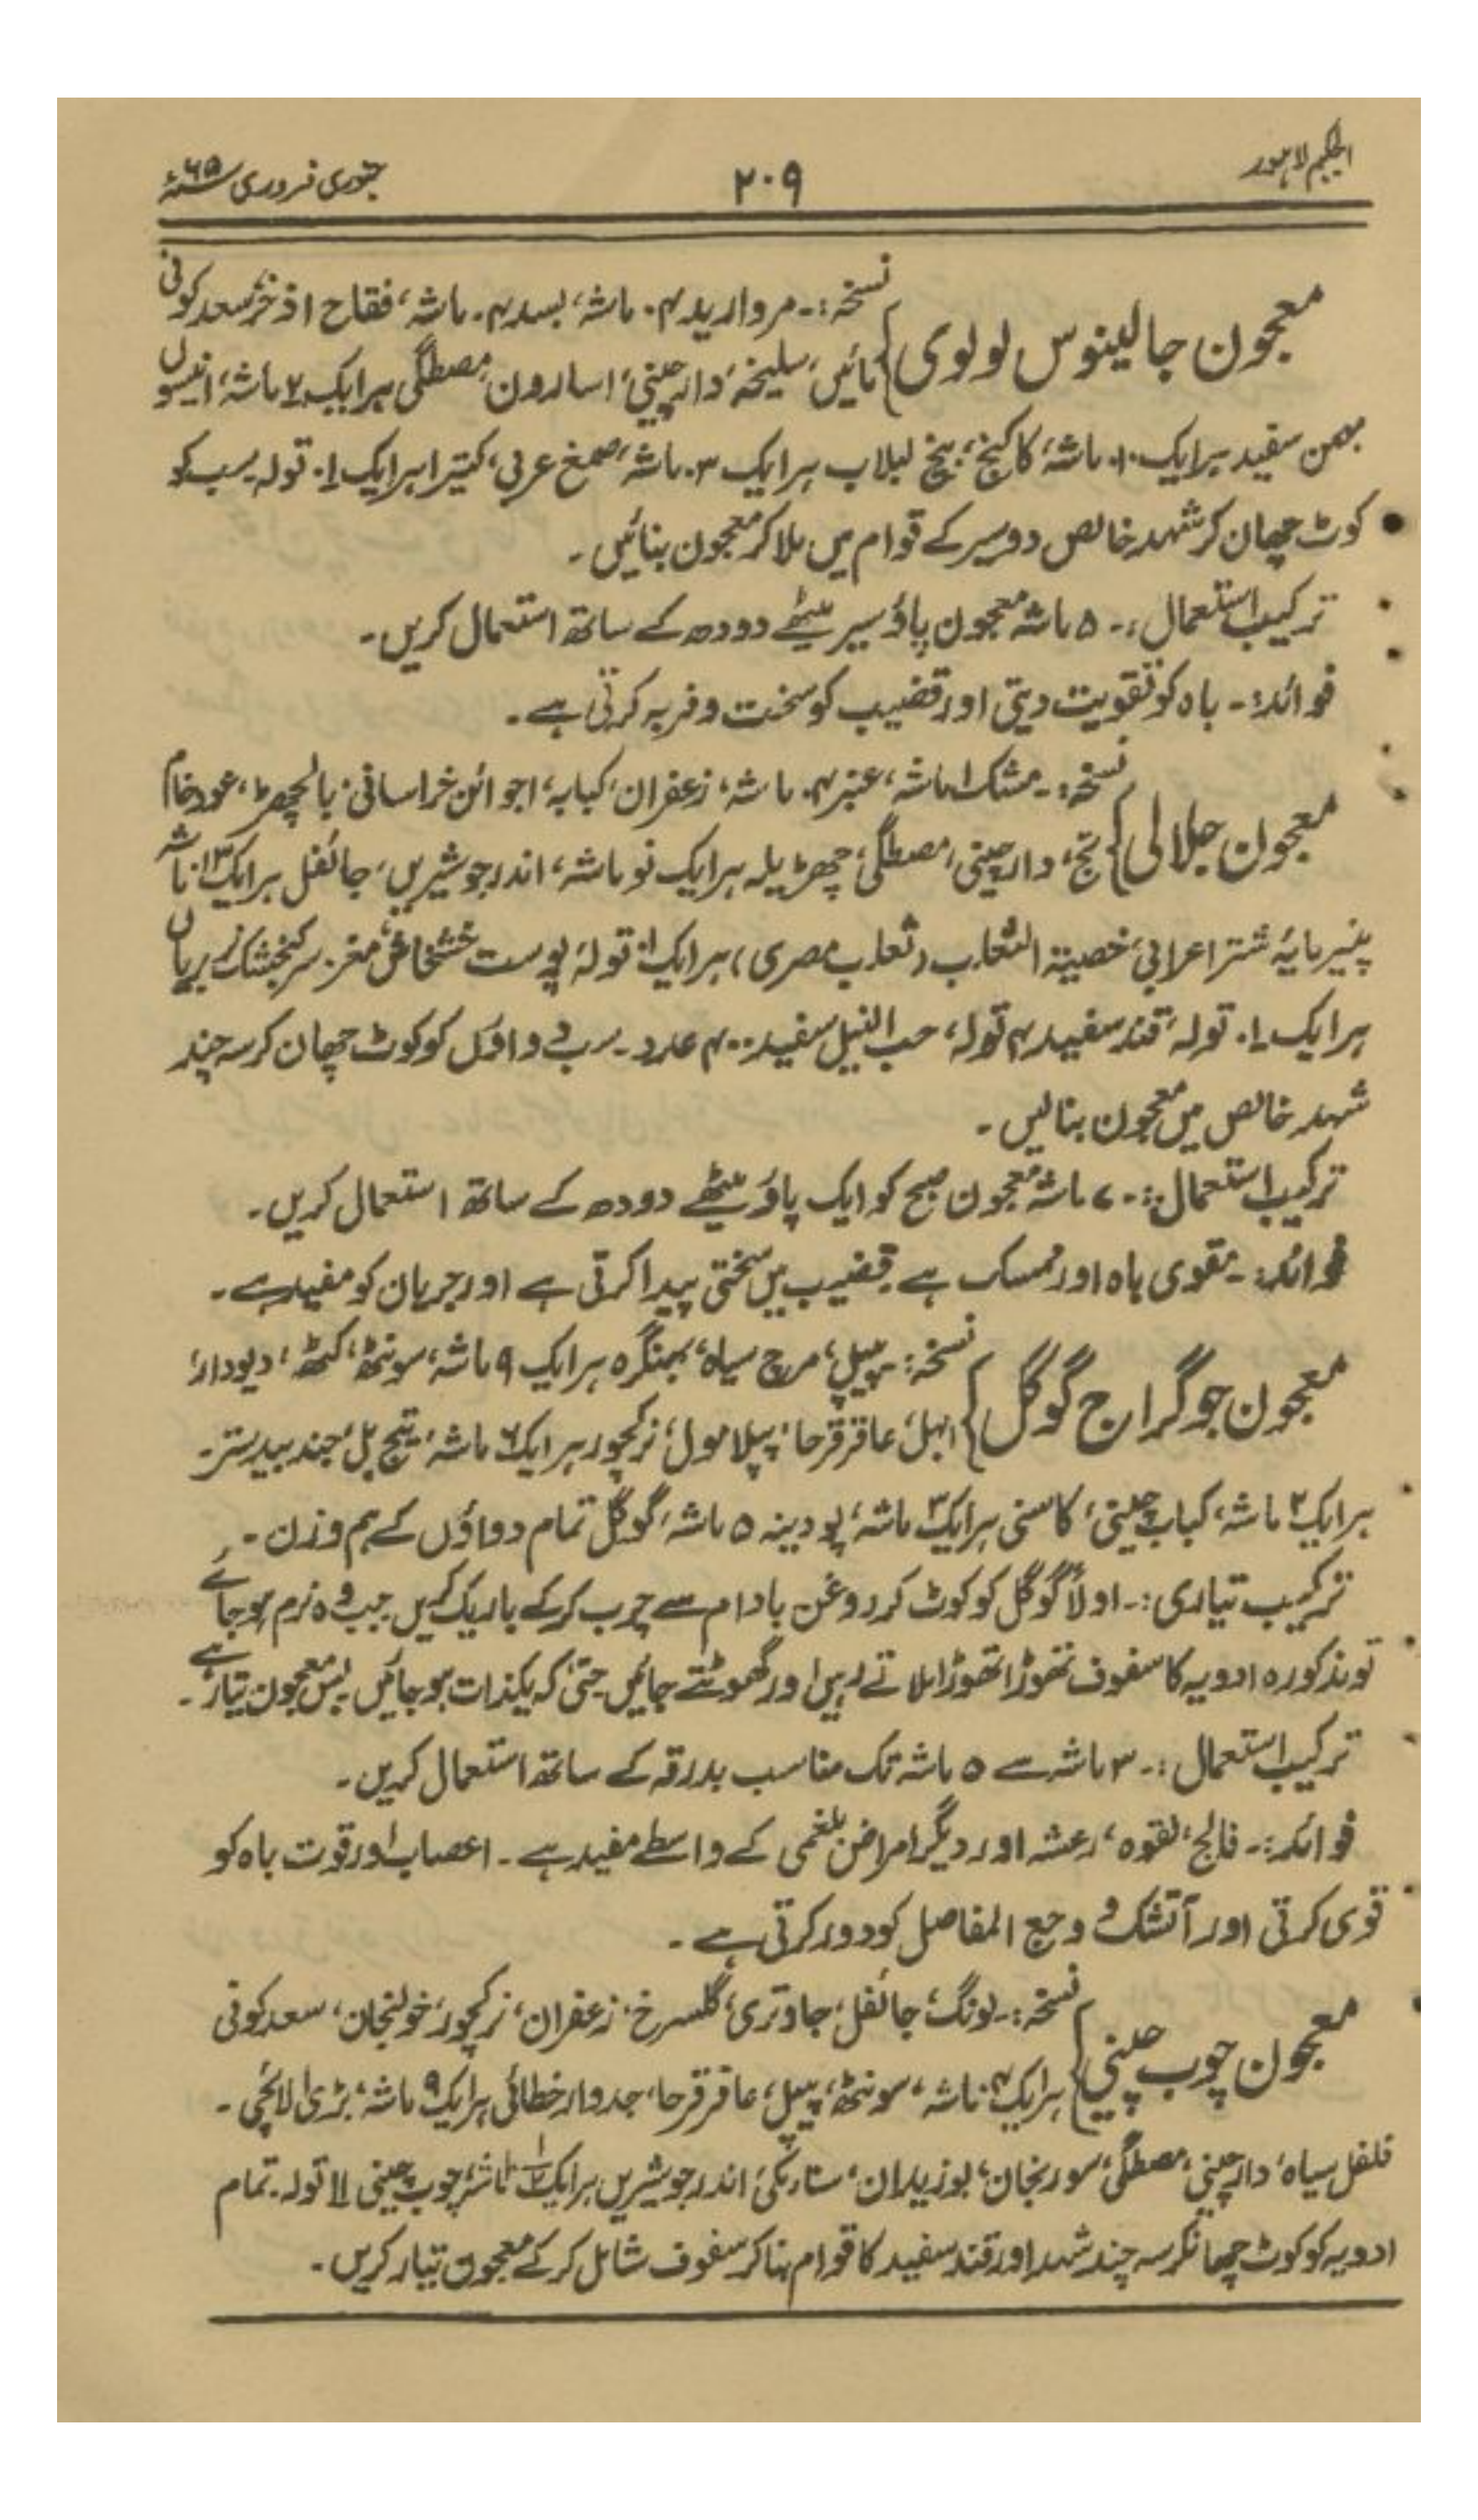 الحکیم لاہور
۲۰۹
جنوری فروری ۶۵ء
معجون جالینوس لولوی } نسخہ:۔ مروارید ۴ ماشہ، بسد ۴ ماشہ، فقاح اذخر، سعد کوفی
مائیں، سلیخہ، دارچینی، اسارون، مصطگی ہر ایک ۷ ماشہ، انیسوں
بہمن سفید ہر ایک ۱۰ ماشہ، کاکنج، بیخ لبلاب ہر ایک ۳ ماشہ، صمغ عربی، کتیرا ہر ایک ۱ تولہ۔ سب کو
کوٹ چھان کر شہد خالص دو سیر کے قوام میں ملا کر معجون بنائیں۔
ترکیب استعمال:۔ ۵ ماشہ معجون پاؤ سیر میٹھے دودھ کے ساتھ استعمال کریں۔
فوائد:۔ باہ کو تقویت دیتی اور قضیب کو سخت و فربہ کرتی ہے۔
معجون جلالی } نسخہ:۔ مشک ۱ ماشہ، عنبر ۴ ماشہ، زعفران، کبابہ، اجوائن خراسانی، بالچھڑ، عود خام
تج، دارچینی، مصطگی، چھڑیلہ ہر ایک نو ماشہ، اندرجو شیریں، جائفل ہر ایک ۱۳ ماشہ
پنیر مایہ شتر اعرابی، خصیتہ الثعلب (ثعلب مصری) ہر ایک ۱ تولہ، پوست خشخاش، مغز سر کنجشک بریاں
ہر ایک ۱ تولہ، قند سفید ۴ تولہ، حب النیل سفید ۴۰۰ عدد۔ سب دواؤں کو کوٹ چھان کر سہ چند
شہد خالص میں معجون بنا لیں۔
ترکیب استعمال:۔ ۷ ماشہ معجون صبح کو ایک پاؤ میٹھے دودھ کے ساتھ استعمال کریں۔
فوائد:۔ مقوی باہ اور ممسک ہے قضیب میں سختی پیدا کرتی ہے اور جریان کو مفید ہے۔
معجون جوگراج گوگل } نسخہ: پیپل، مرچ سیاہ، بھنگرہ ہر ایک ۹ ماشہ، سونٹھ، کٹھ، دیودار،
ابہل، عاقرقرحا، پپلامول، نرکچور ہر ایک ۶ ماشہ، تیج بل، جند بیدستر۔
ہر ایک ۲ ماشہ، کباب چینی، کاسنی ہر ایک ۳ ماشہ، پودینہ ۵ ماشہ، گوگل تمام دواؤں کے ہم وزن۔
ترکیب تیاری:۔ اولاً گوگل کو کوٹ کر روغن بادام سے چرب کر کے باریک کریں جب وہ نرم ہو جائے
تو مذکورہ ادویہ کا سفوف تھوڑا تھوڑا ملاتے رہیں اور گھوٹتے جائیں حتیٰ کہ یکذات ہو جائیں بس معجون تیار ہے۔
ترکیب استعمال:۔ ۳ ماشہ سے ۵ ماشہ تک مناسب بدرقہ کے ساتھ استعمال کریں۔
فوائد:۔ فالج، لقوہ، رعشہ اور دیگر امراض بلغمی کے واسطے مفید ہے۔ اعصاب اور قوت باہ کو
قوی کرتی اور آتشک و وجع المفاصل کو دور کرتی ہے۔
معجون چوب چینی } نسخہ:۔ لونگ، جائفل، جاوتری، گلسرخ، زعفران، نرکچور، خولنجان، سعد کوفی
ہر ایک ۴ ماشہ، سونٹھ، پیپل، عاقرقرحا، جدوار خطائی ہر ایک ۹ ماشہ، بڑی الائچی۔
فلفل سیاہ، دارچینی، مصطگی، سورنجان، بوزیدان، سنا مکی، اندرجو شیریں ہر ایک ماشہ، چوب چینی ۱۱ تولہ۔ تمام
ادویہ کو کوٹ چھانکر سہ چند شہد اور قند سفید کا قوام بنا کر سفوف شامل کر کے معجون تیار کریں۔